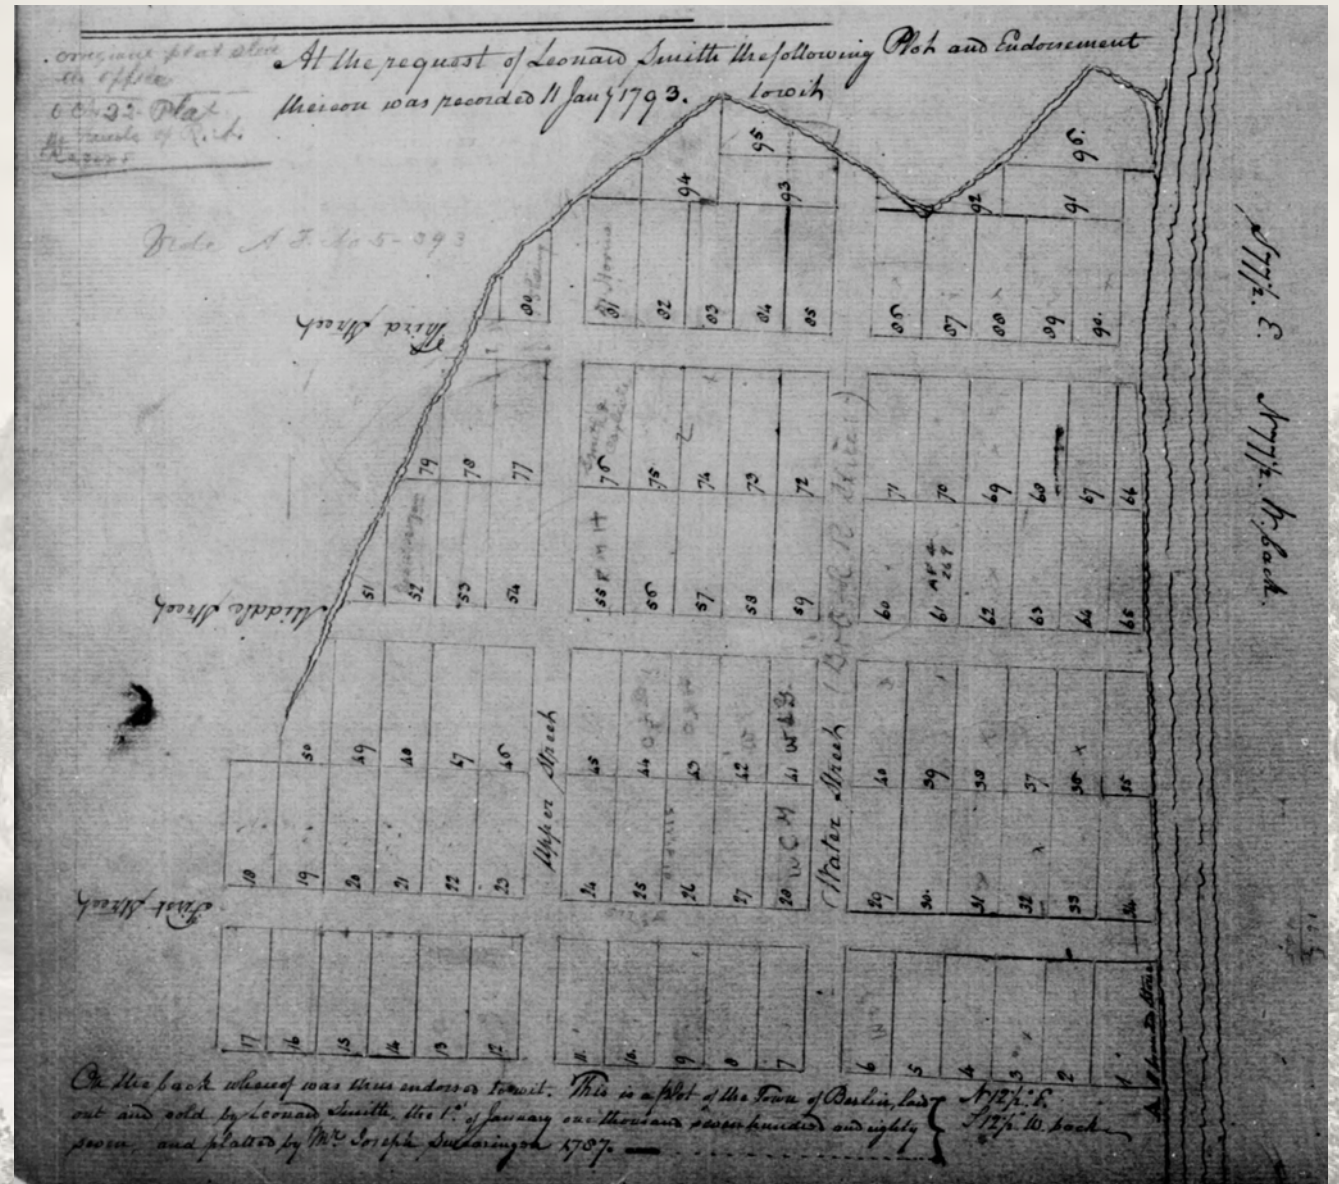 At the request of Leonard Smith the following Plot and Endorsement
thereon was recorded 11 Jany 1793. towit
office
Plat
Third Street
Middle Street
First Street
Upper Street
Water Street
(B & O R R Street)
95
96
94
93
92
91
80
81
82
83
84
85
86
87
88
89
90
79
78
77
76
75
74
73
72
71
70
69
68
67
66
51
52
53
54
55 R M H
56
57
58
59
60
61
62
63
64
65
50
49
48
47
46
45
44
43
42
41 W & G.
40
39
38
37
36 x
35
18
19
20
21
22
23
24
25
26
27
28 W C M
29
30
31
32
33
34
17
16
15
14
13
12
11
10
9
8
7
6
5
4
3
2
1
On the back whereof was thus endorsed towit. This is a plot of the Town of Berlin, laid
out and sold by Leonard Smith, the 1st of January one thousand seven hundred and eighty
seven, and platted by Mr. Joseph Swearingen 1787.
N 12 p. E.
S 12 p. W. back